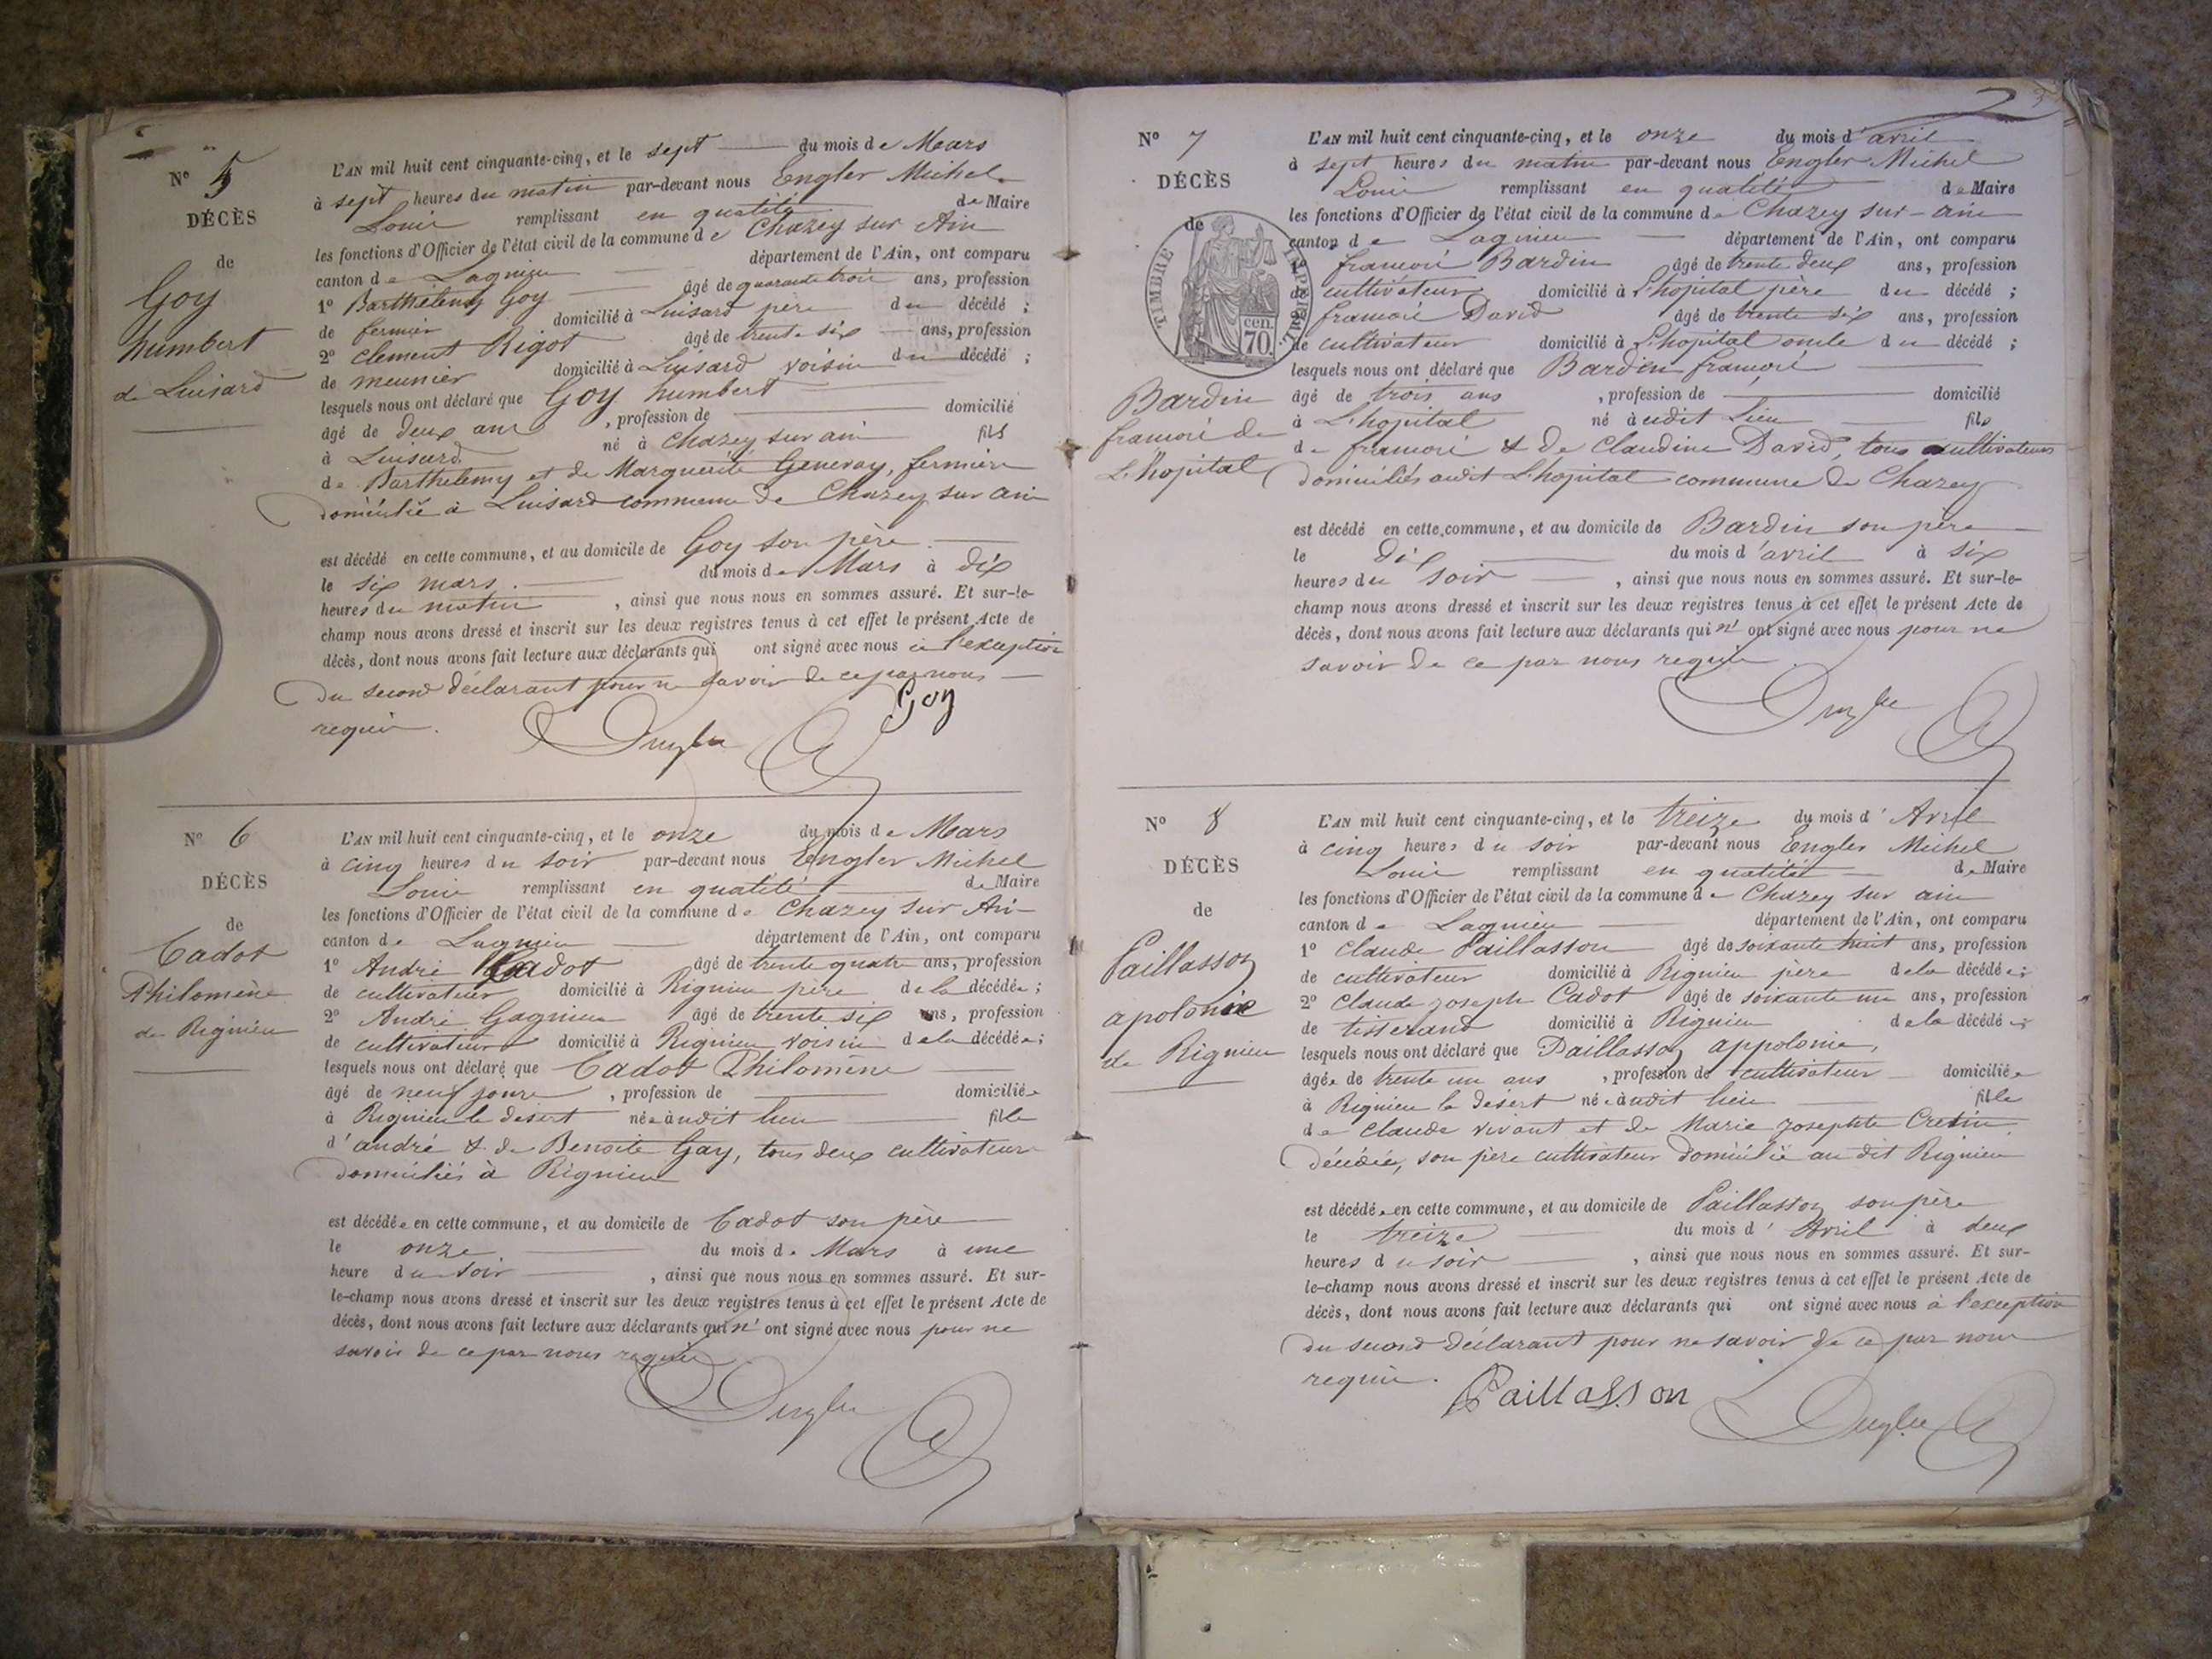 N° 5
DÉCÈS
de
Goy
humbert
de Luisard
L'AN mil huit cent cinquante-cinq, et le sept du mois de Mars
à sept heures du matin par-devant nous Engler Michel
Louis remplissant en qualité de Maire
les fonctions d'Officier de l'état civil de la commune de Chazey sur Ain
canton de Lagnieu département de l'Ain, ont comparu
1° Barthélemy Goy âgé de quarante trois ans, profession
de fermier domicilié à Luisard père du décédé ;
2° Clement Rigot âgé de trente six ans, profession
de meunier domicilié à Luisard voisin du décédé ;
lesquels nous ont déclaré que Goy humbert
âgé de deux ans , profession de domicilié
à Luisard né à Chazey sur ain fils
de Barthelemy et de Marguerite Genevay, fermiers
domicilié à Luisard commune de Chazey sur ain
est décédé en cette commune, et au domicile de Goy son père
le six mars. du mois de Mars à dix
heures du matin , ainsi que nous nous en sommes assuré. Et sur-le-
champ nous avons dressé et inscrit sur les deux registres tenus à cet effet le présent Acte de
décès, dont nous avons fait lecture aux déclarants qui ont signé avec nous à l'exception
du second déclarant pour ne savoir de ce par nous
requis.
Goy
Engler
N° 6
DÉCÈS
de
Cadot
Philomène
de Rignieu
L'AN mil huit cent cinquante-cinq, et le onze du mois de Mars
à cinq heures du soir par-devant nous Engler Michel
Louis remplissant en qualité de Maire
les fonctions d'Officier de l'état civil de la commune de Chazey sur Ain
canton de Lagnieu département de l'Ain, ont comparu
1° André Cadot âgé de trente quatre ans, profession
de cultivateur domicilié à Rignieu père de la décédée ;
2° André Gagnieu âgé de trente six ans, profession
de cultivateur domicilié à Rignieu voisin de la décédée ;
lesquels nous ont déclaré que Cadot Philomène
âgé de neuf jours , profession de domiciliée
à Rignieu le desert née audit lieu fille
d'andré & de Benoite Gay, tous deux cultivateurs
domiciliés à Rignieu
est décédée en cette commune, et au domicile de Cadot son père
le onze. du mois de Mars à une
heure du soir , ainsi que nous nous en sommes assuré. Et sur-
le-champ nous avons dressé et inscrit sur les deux registres tenus à cet effet le présent Acte de
décès, dont nous avons fait lecture aux déclarants qui n' ont signé avec nous pour ne
savoir de ce par nous requis
Engler
N° 7
DÉCÈS
de
TIMBRE IMPÉRIAL
70 cen.
Bardin
francois de
L'hopital
L'AN mil huit cent cinquante-cinq, et le onze du mois d'avril
à sept heures du matin par-devant nous Engler Michel
Louis remplissant en qualité de Maire
les fonctions d'Officier de l'état civil de la commune de Chazey sur-ain
canton de Lagnieu département de l'Ain, ont comparu
1° francois Bardin âgé de trente deux ans, profession
de cultivateur domicilié à L'hopital père du décédé ;
2° francois David âgé de trente six ans, profession
de cultivateur domicilié à L'hopital oncle du décédé ;
lesquels nous ont déclaré que Bardin francois
âgé de trois ans , profession de domicilié
à L'hopital né audit lieu fils
de francois & de Claudine David, tous cultivateurs
domiciliés audit L'hopital commune de Chazey
est décédé en cette commune, et au domicile de Bardin son père
le dix du mois d'avril à six
heures du soir , ainsi que nous nous en sommes assuré. Et sur-le-
champ nous avons dressé et inscrit sur les deux registres tenus à cet effet le présent Acte de
décès, dont nous avons fait lecture aux déclarants qui n' ont signé avec nous pour ne
savoir de ce par nous requis
Engler
N° 8
DÉCÈS
de
Paillasson
apolonie
de Rignieu
L'AN mil huit cent cinquante-cinq, et le treize du mois d' Avril
à cinq heures du soir par-devant nous Engler Michel
Louis remplissant en qualité de Maire
les fonctions d'Officier de l'état civil de la commune de Chazey sur ain
canton de Lagnieu département de l'Ain, ont comparu
1° Claude Paillasson âgé de soixante huit ans, profession
de cultivateur domicilié à Rignieu père de la décédée ;
2° Claude joseph Cadot âgé de soixante un ans, profession
de tisserand domicilié à Rignieu de la décédée ;
lesquels nous ont déclaré que Paillasson appolonie,
âgée de trente un ans , profession de cultivateur domiciliée
à Rignieu le desert née audit lieu fille
de Claude vivant et de Marie Josephte Cretin
décédée, son père cultivateur domicilié au dit Rignieu
est décédée en cette commune, et au domicile de Paillasson son père
le treize du mois d' Avril à deux
heures du soir , ainsi que nous nous en sommes assuré. Et sur-
le-champ nous avons dressé et inscrit sur les deux registres tenus à cet effet le présent Acte de
décès, dont nous avons fait lecture aux déclarants qui ont signé avec nous à l'exception
du second déclarant pour ne savoir de ce par nous
requis.
Paillasson
Engler